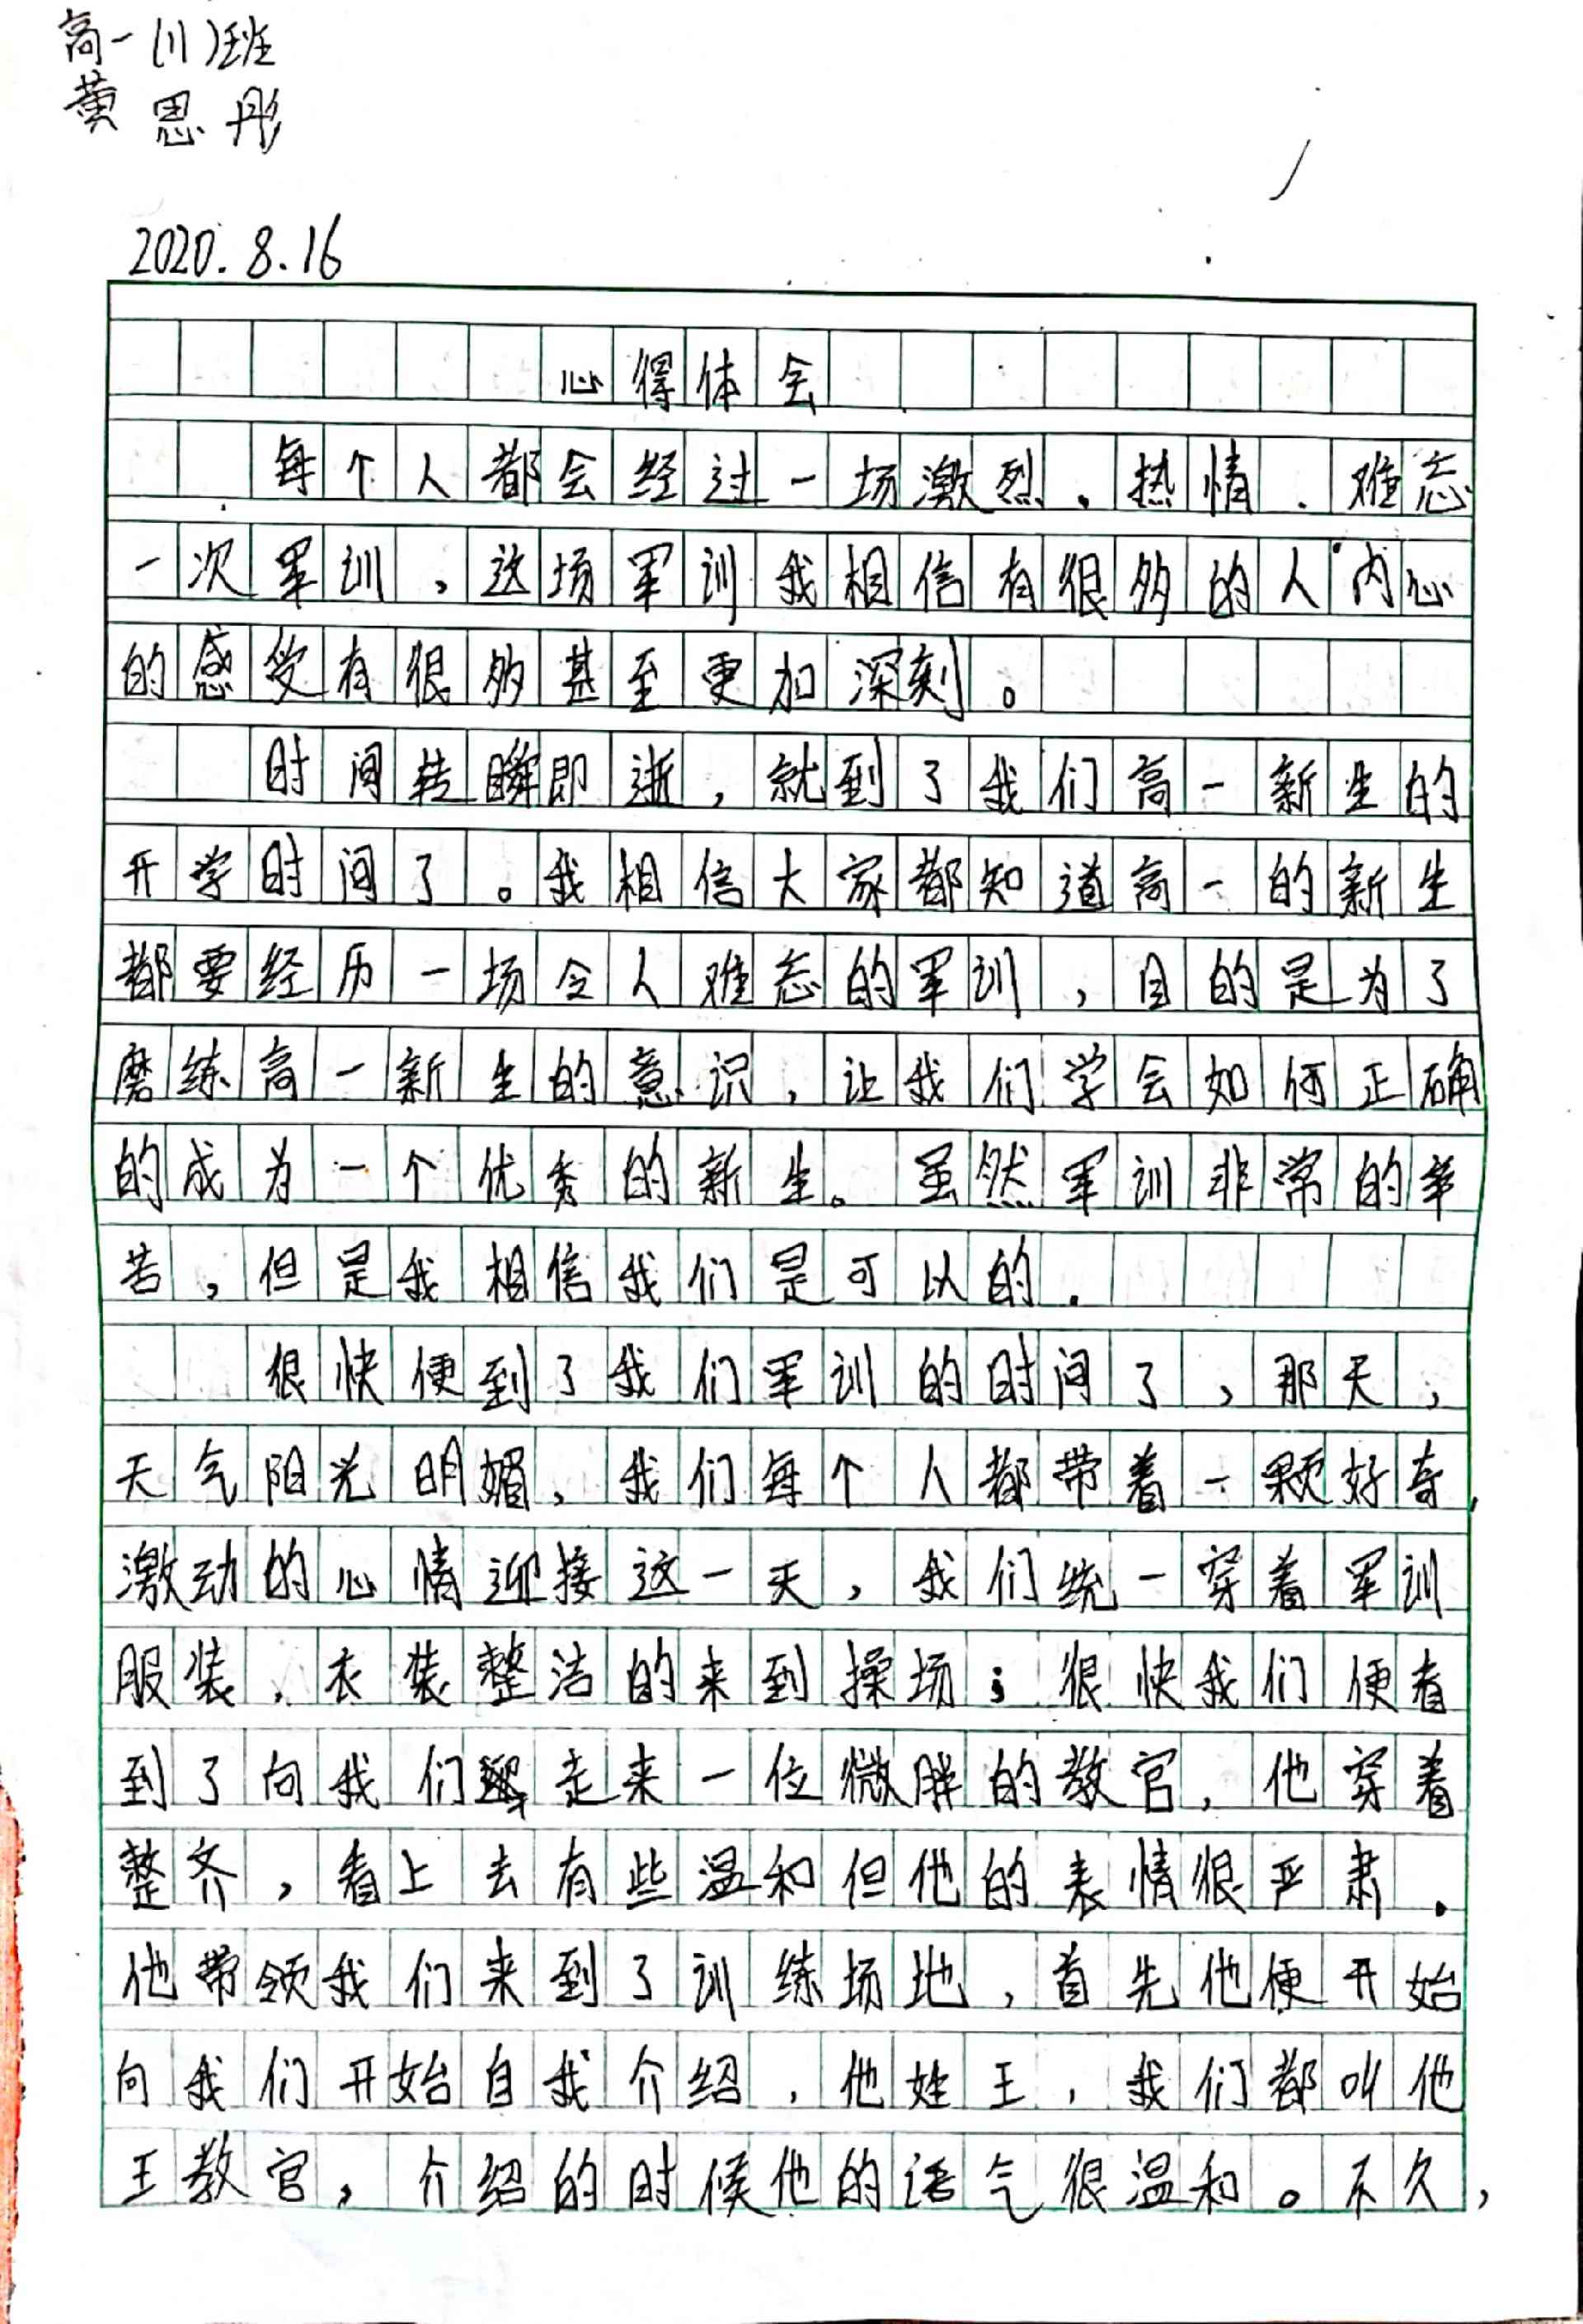 高一(11)班
黄思彤
2020.8.16
心得体会
每个人都会经过一场激烈、热情、难忘
一次军训，这场军训我相信有很多的人内心
的感受有很多甚至更加深刻。
时间转瞬即逝，就到了我们高一新生的
开学时间了。我相信大家都知道高一的新生
都要经历一场令人难忘的军训，目的是为了
磨练高一新生的意识，让我们学会如何正确
的成为一个优秀的新生。虽然军训非常的辛
苦，但是我相信我们是可以的.
很快便到了我们军训的时间了，那天，
天气阳光明媚，我们每个人都带着一颗好奇，
激动的心情迎接这一天，我们统一穿着军训
服装，衣装整洁的来到操场；很快我们便看
到了向我们走来一位微胖的教官，他穿着
整齐，看上去有些温和但他的表情很严肃.
他带领我们来到了训练场地，首先他便开始
向我们开始自我介绍，他姓王，我们都叫他
王教官，介绍的时候他的语气很温和。不久，